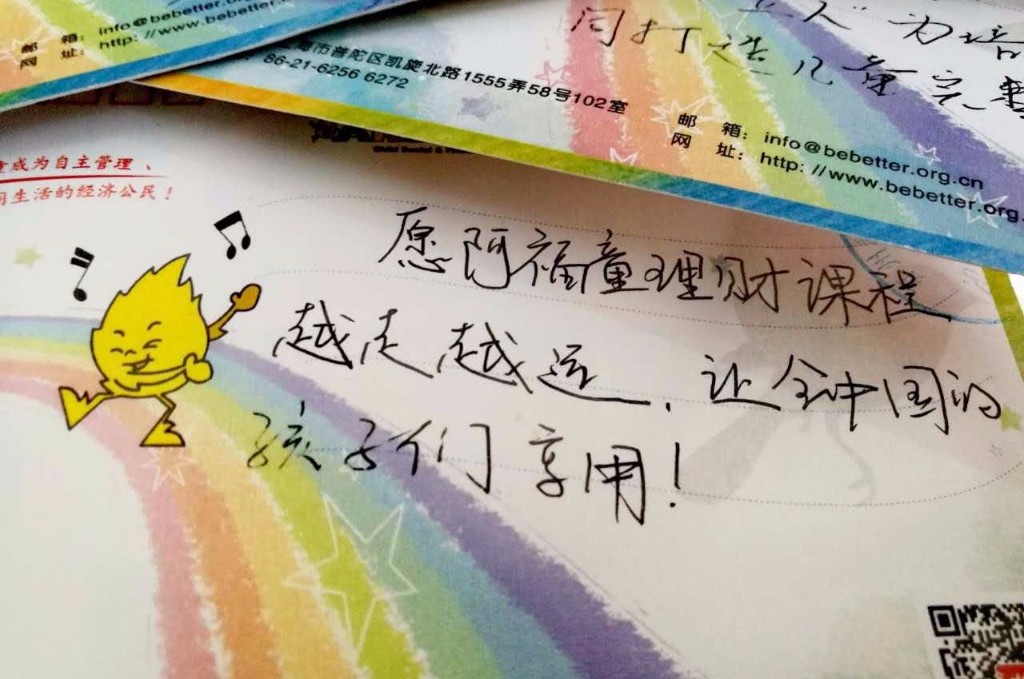 邮 箱: info@bebetter.org.cn
网 址: http: //www.bebetter.org.
海市普陀区凯旋北路1555弄58号102室
86-21-6256 6272
为培
同打造儿童完整
邮 箱: info@bebetter.org.cn
网 址: http: //www.bebetter.org.
成为自主管理、
生活的经济公民!
愿阿福童理财课程
越走越远,让全中国的
孩子们享用!